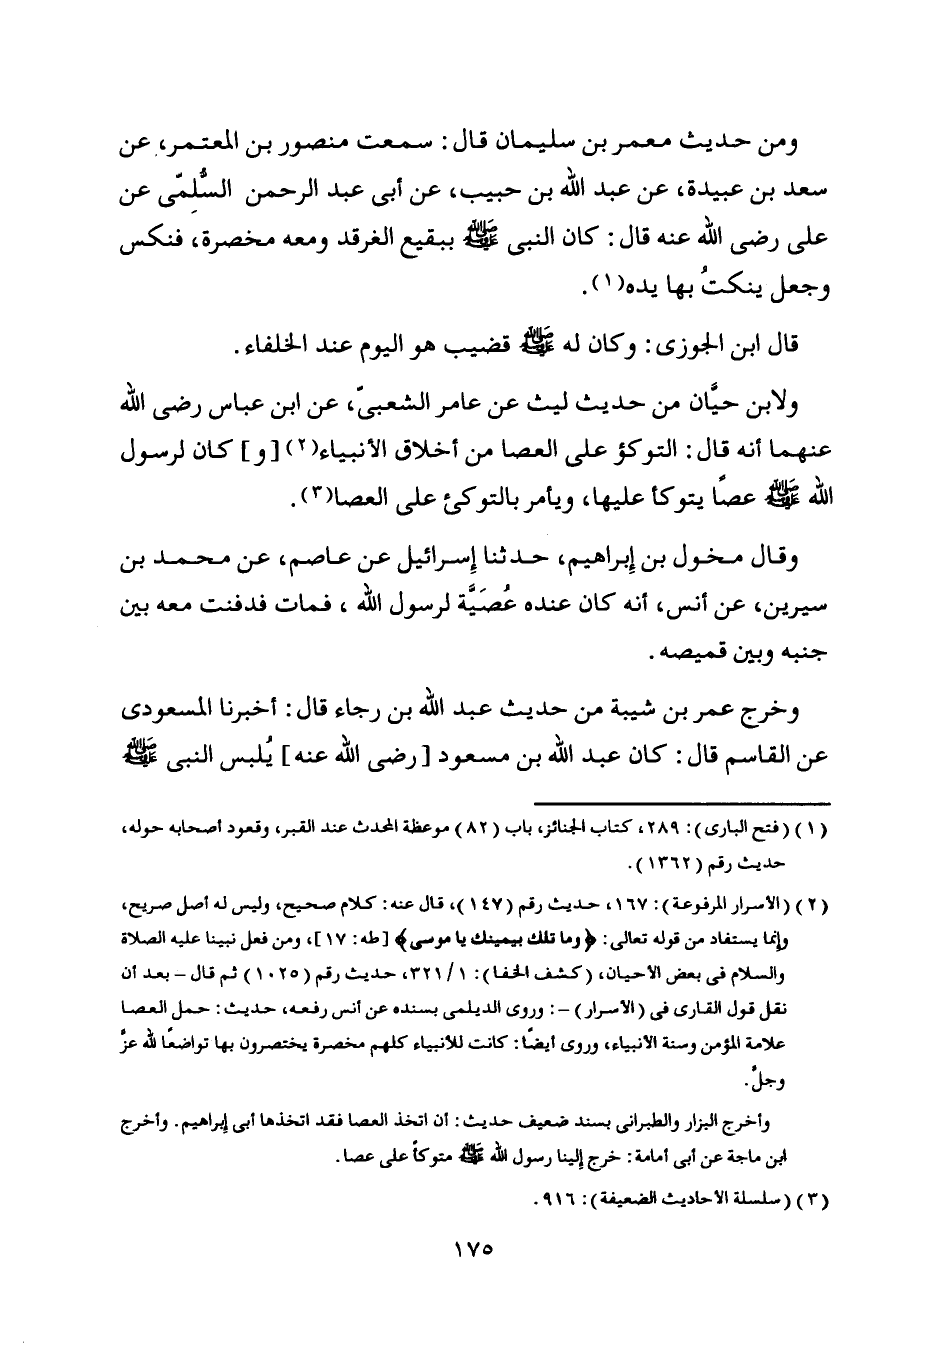 ومن حديث معمر بن سليمان قال: سمعت منصور بن المعتمر، عن
سعد بن عبيدة، عن عبد الله بن حبيب، عن أبى عبد الرحمن السُّلمّى عن
على رضى الله عنه قال: كان النبى ﷺ ببقيع الغرقد ومعه مخصرة، فنكس
وجعل ينكتُ بها يده(١).
قال ابن الجوزى: وكان له ﷺ قضيب هو اليوم عند الخلفاء.
ولابن حيَّان من حديث ليث عن عامر الشعبىّ، عن ابن عباس رضى الله
عنهما أنه قال: التوكؤ على العصا من أخلاق الأنبياء(٢) [و] كان لرسول
الله ﷺ عصًا يتوكأ عليها، ويأمر بالتوكئ على العصا(٣).
وقال مخول بن إبراهيم، حدثنا إسرائيل عن عاصم، عن محمد بن
سيرين، عن أنس، أنه كان عنده عُصَيَّة لرسول الله ، فمات فدفنت معه بين
جنبه وبين قميصه.
وخرج عمر بن شيبة من حديث عبد الله بن رجاء قال: أخبرنا المسعودى
عن القاسم قال: كان عبد الله بن مسعود [رضى الله عنه] يُلبس النبى ﷺ
(١) (فتح البارى): ٢٨٩، كتاب الجنائز، باب (٨٢) موعظة المحدث عند القبر، وقعود أصحابه حوله،
حديث رقم (١٣٦٢).
(٢) (الأسرار المرفوعة): ١٦٧، حديث رقم (١٤٧)، قال عنه: كلام صحيح، وليس له أصل صريح،
وإنما يستفاد من قوله تعالى: ﴿وما تلك بيمينك يا موسى﴾ [طه: ١٧]، ومن فعل نبينا عليه الصلاة
والسلام فى بعض الأحيان، (كشف الخفا): ١/ ٣٢١، حديث رقم (١٠٢٥) ثم قال – بعد أن
نقل قول القارى فى (الأسرار) –: وروى الديلمى بسنده عن أنس رفعه، حديث: حمل العصا
علامة المؤمن وسنة الأنبياء، وروى أيضًا: كانت للأنبياء كلهم مخصرة يختصرون بها تواضعًا لله عزَّ
وجلَّ.
وأخرج البزار والطبرانى بسند ضعيف حديث: أن اتخذ العصا فقد اتخذها أبى إبراهيم. وأخرج
ابن ماجة عن أبى أمامة: خرج إلينا رسول الله ﷺ متوكأ على عصا.
(٣) (سلسلة الأحاديث الضعيفة): ٩١٦.
١٧٥